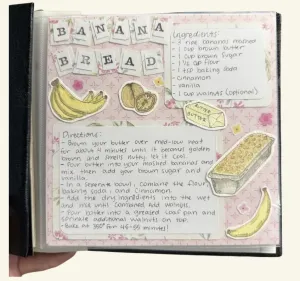 BANANA
BREAD
Ingredients:
- 3 ripe bananas mashed
- 1 cup brown butter
- 1 cup brown sugar
- 1 ½ cup flour
- 1 tsp baking soda
- cinnamon
- vanilla
- 1 cup walnuts (optional)
BUTTER
Directions:
- Brown your butter over med-low heat
for about 5 minutes until it becomes golden
brown and smells nutty, let it cool.
- Pour butter into your mashed bananas and
mix, then add your brown sugar and
vanilla.
- In a separate bowl, combine the flour,
baking soda, and cinnamon.
- Add the dry ingredients into the wet
and mix until combined. Fold walnuts.
- Pour batter into a greased loaf pan and
sprinkle additional walnuts on top.
- Bake at 350° for 45-55 minutes!